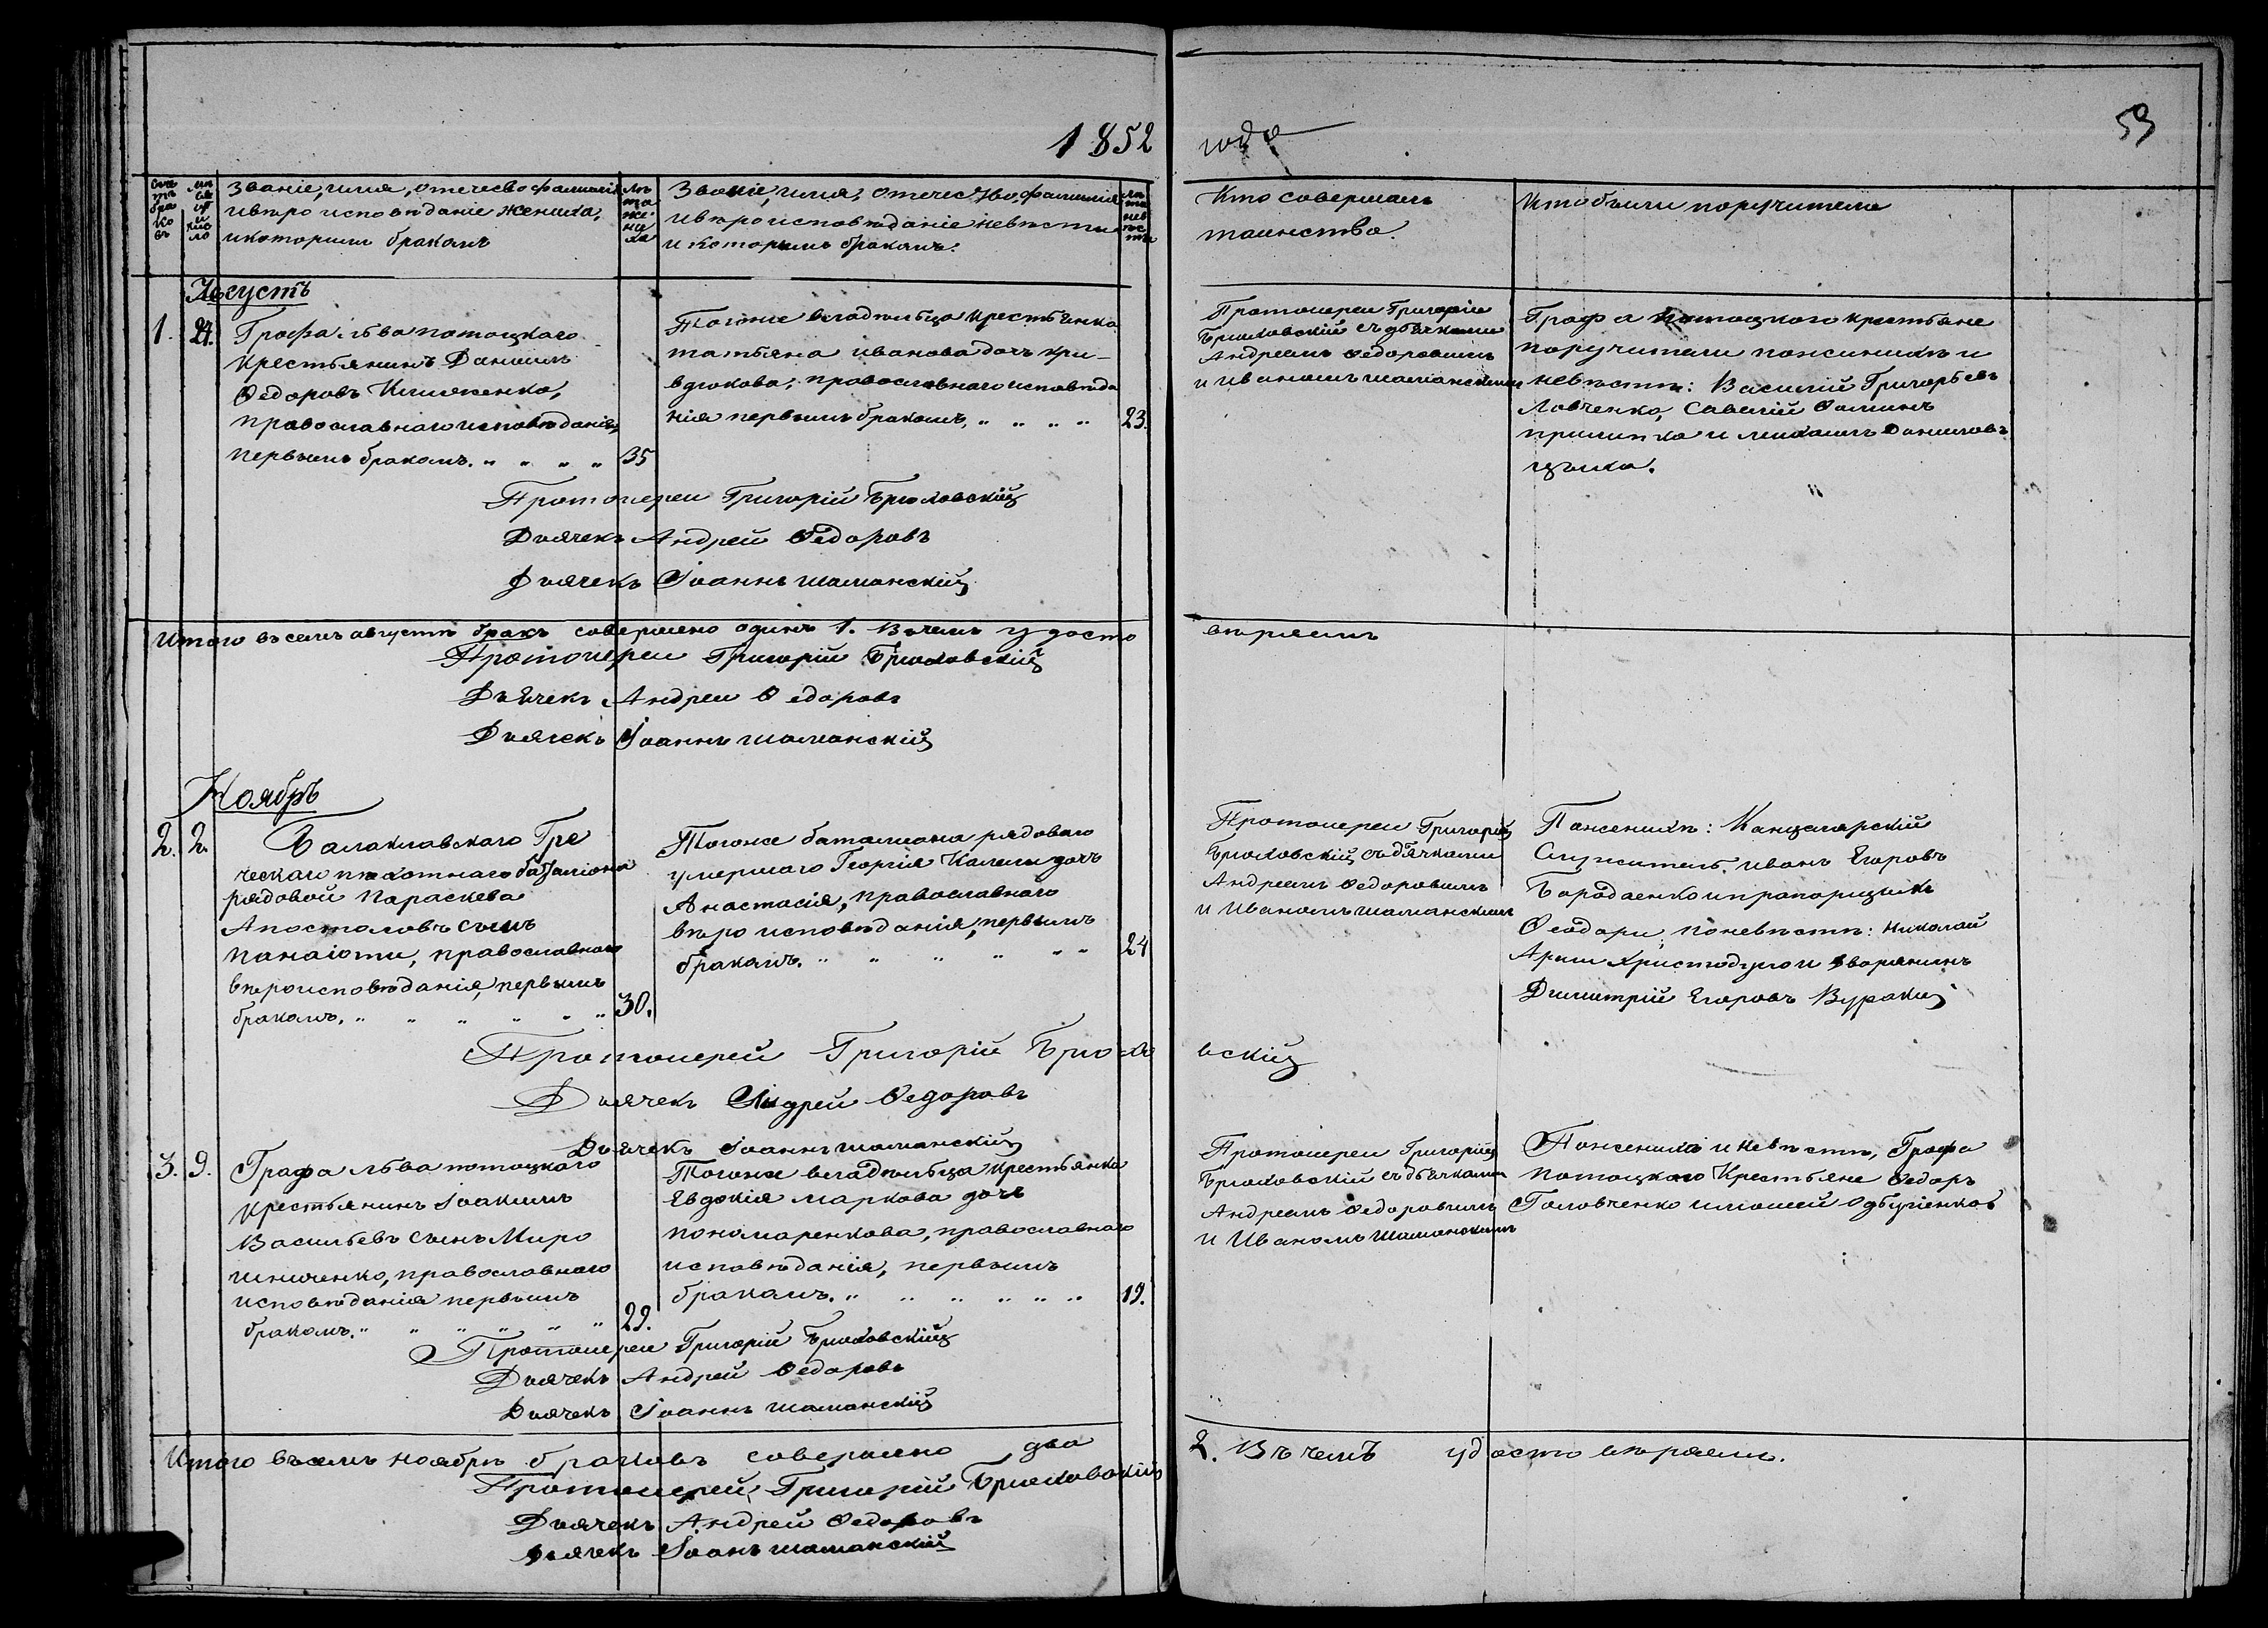 1852 года
53
Счетъ браковъ
Мѣсяцъ и число
Званіе, имя, отечество фамилія
и вѣроисповѣданіе жениха,
и которымъ бракомъ
Лѣта жениха
Званіе, имя, отечество, фамилія
и вѣроисповѣданіе невѣсты
и которымъ бракомъ.
Лѣта невѣсты
Кто совершалъ
таинство.
Кто были поручители
Августъ
1. 24.
Графа Льва потоцкаго
крестьянинъ Даниилъ
Ѳедоровъ
православнаго исповѣданія,
первымъ бракомъ. „ „ „ „ 35
Тогоже владѣльца крестьянка
татьяна иванова дочь кри-
вдюкова, православнаго исповѣда
нія первымъ бракомъ, „ „ „ „ 23.
Протоиереи Григоріи
Брюховскій съ дьячками
Андреемъ Ѳедоровымъ
и иваномъ шаманскимъ
Графа потоцкого крестьяне
поручители по женихѣ и
невѣстѣ: Василій Григорьевъ
Ловченко, Савелій Ѳоминъ
и Даниловъ
Протоиереи Григорій Брюховскій
Дьячекъ Андрей Ѳедоровъ
Дьячекъ Іоаннъ шаманскій
Итого въ семъ августѣ бракъ совершено одинъ 1. Въ чемъ удосто
вѣряемъ
Протоиереи Григорій Брюховскій
Дьячекъ Андреи Ѳедоровъ
Дьячекъ Іоаннъ шаманскій
Ноябрь
2. 2.
Балаклавского Гре
ческаго пѣхотнаго баталіона
рядовой Параскева
Апостоловъ сынъ
панаіоти, православнаго
вѣроисповѣданія, первымъ
бракомъ. „ „ „ „ „ „ 30.
Тогоже баталиона рядоваго
умершаго Георгія дочь
Анастасія, православнаго
вѣро исповѣданія, первымъ
бракомъ. „ „ „ „ „ „ 24
Протоиереи Григорій
Брюховскій съ дьячками
Андреемъ Ѳедоровымъ
и Иваномъ шаманскимъ
По женихѣ: Канцелярскій
Служитель, иванъ Егоровъ
Бородаенко и прапорщикъ
Ѳеодори, по невѣстѣ: николай
Христодуло и дворянинъ
Димитрій Егоровъ Вураки
Протоиерей Григорій Брюхо
вскій
Дьячекъ Андрей Ѳедоровъ
Дьячекъ Іоаннъ шаманскій
3. 9.
Графа Льва потоцкого
крестьянинъ Іоакимъ
Васильевъ сынъ Миро
шниченко, православнаго
исповѣданія первымъ
бракомъ. „ „ „ „ „ „ 29.
Тогоже владѣльца крестьянка
Евдокія маркова дочь
пономаренкова, православнаго
исповѣданія, первымъ
бракомъ. „ „ „ „ „ „ 19.
Протоиереи Григорій
Брюховскій съ дьячками
Андреемъ Ѳедоровымъ
и Иваномъ Шаманскимъ
По жениха и невѣстѣ, Графа
потоцкого Крестьяне Ѳедоръ
Головченко и моисей
Протоиереи Григорій Брюховскій
Дьячекъ Андрей Ѳедоровъ
Дьячекъ Іоаннъ шаманскій
Итого въ семъ ноябрѣ браковъ совершено два
2. Въ чемъ удостовѣряемъ.
Протоиерей Григорій Брюховскій
Дьячекъ Андрей Ѳедоровъ
Дьячекъ Іоанъ шаманскій